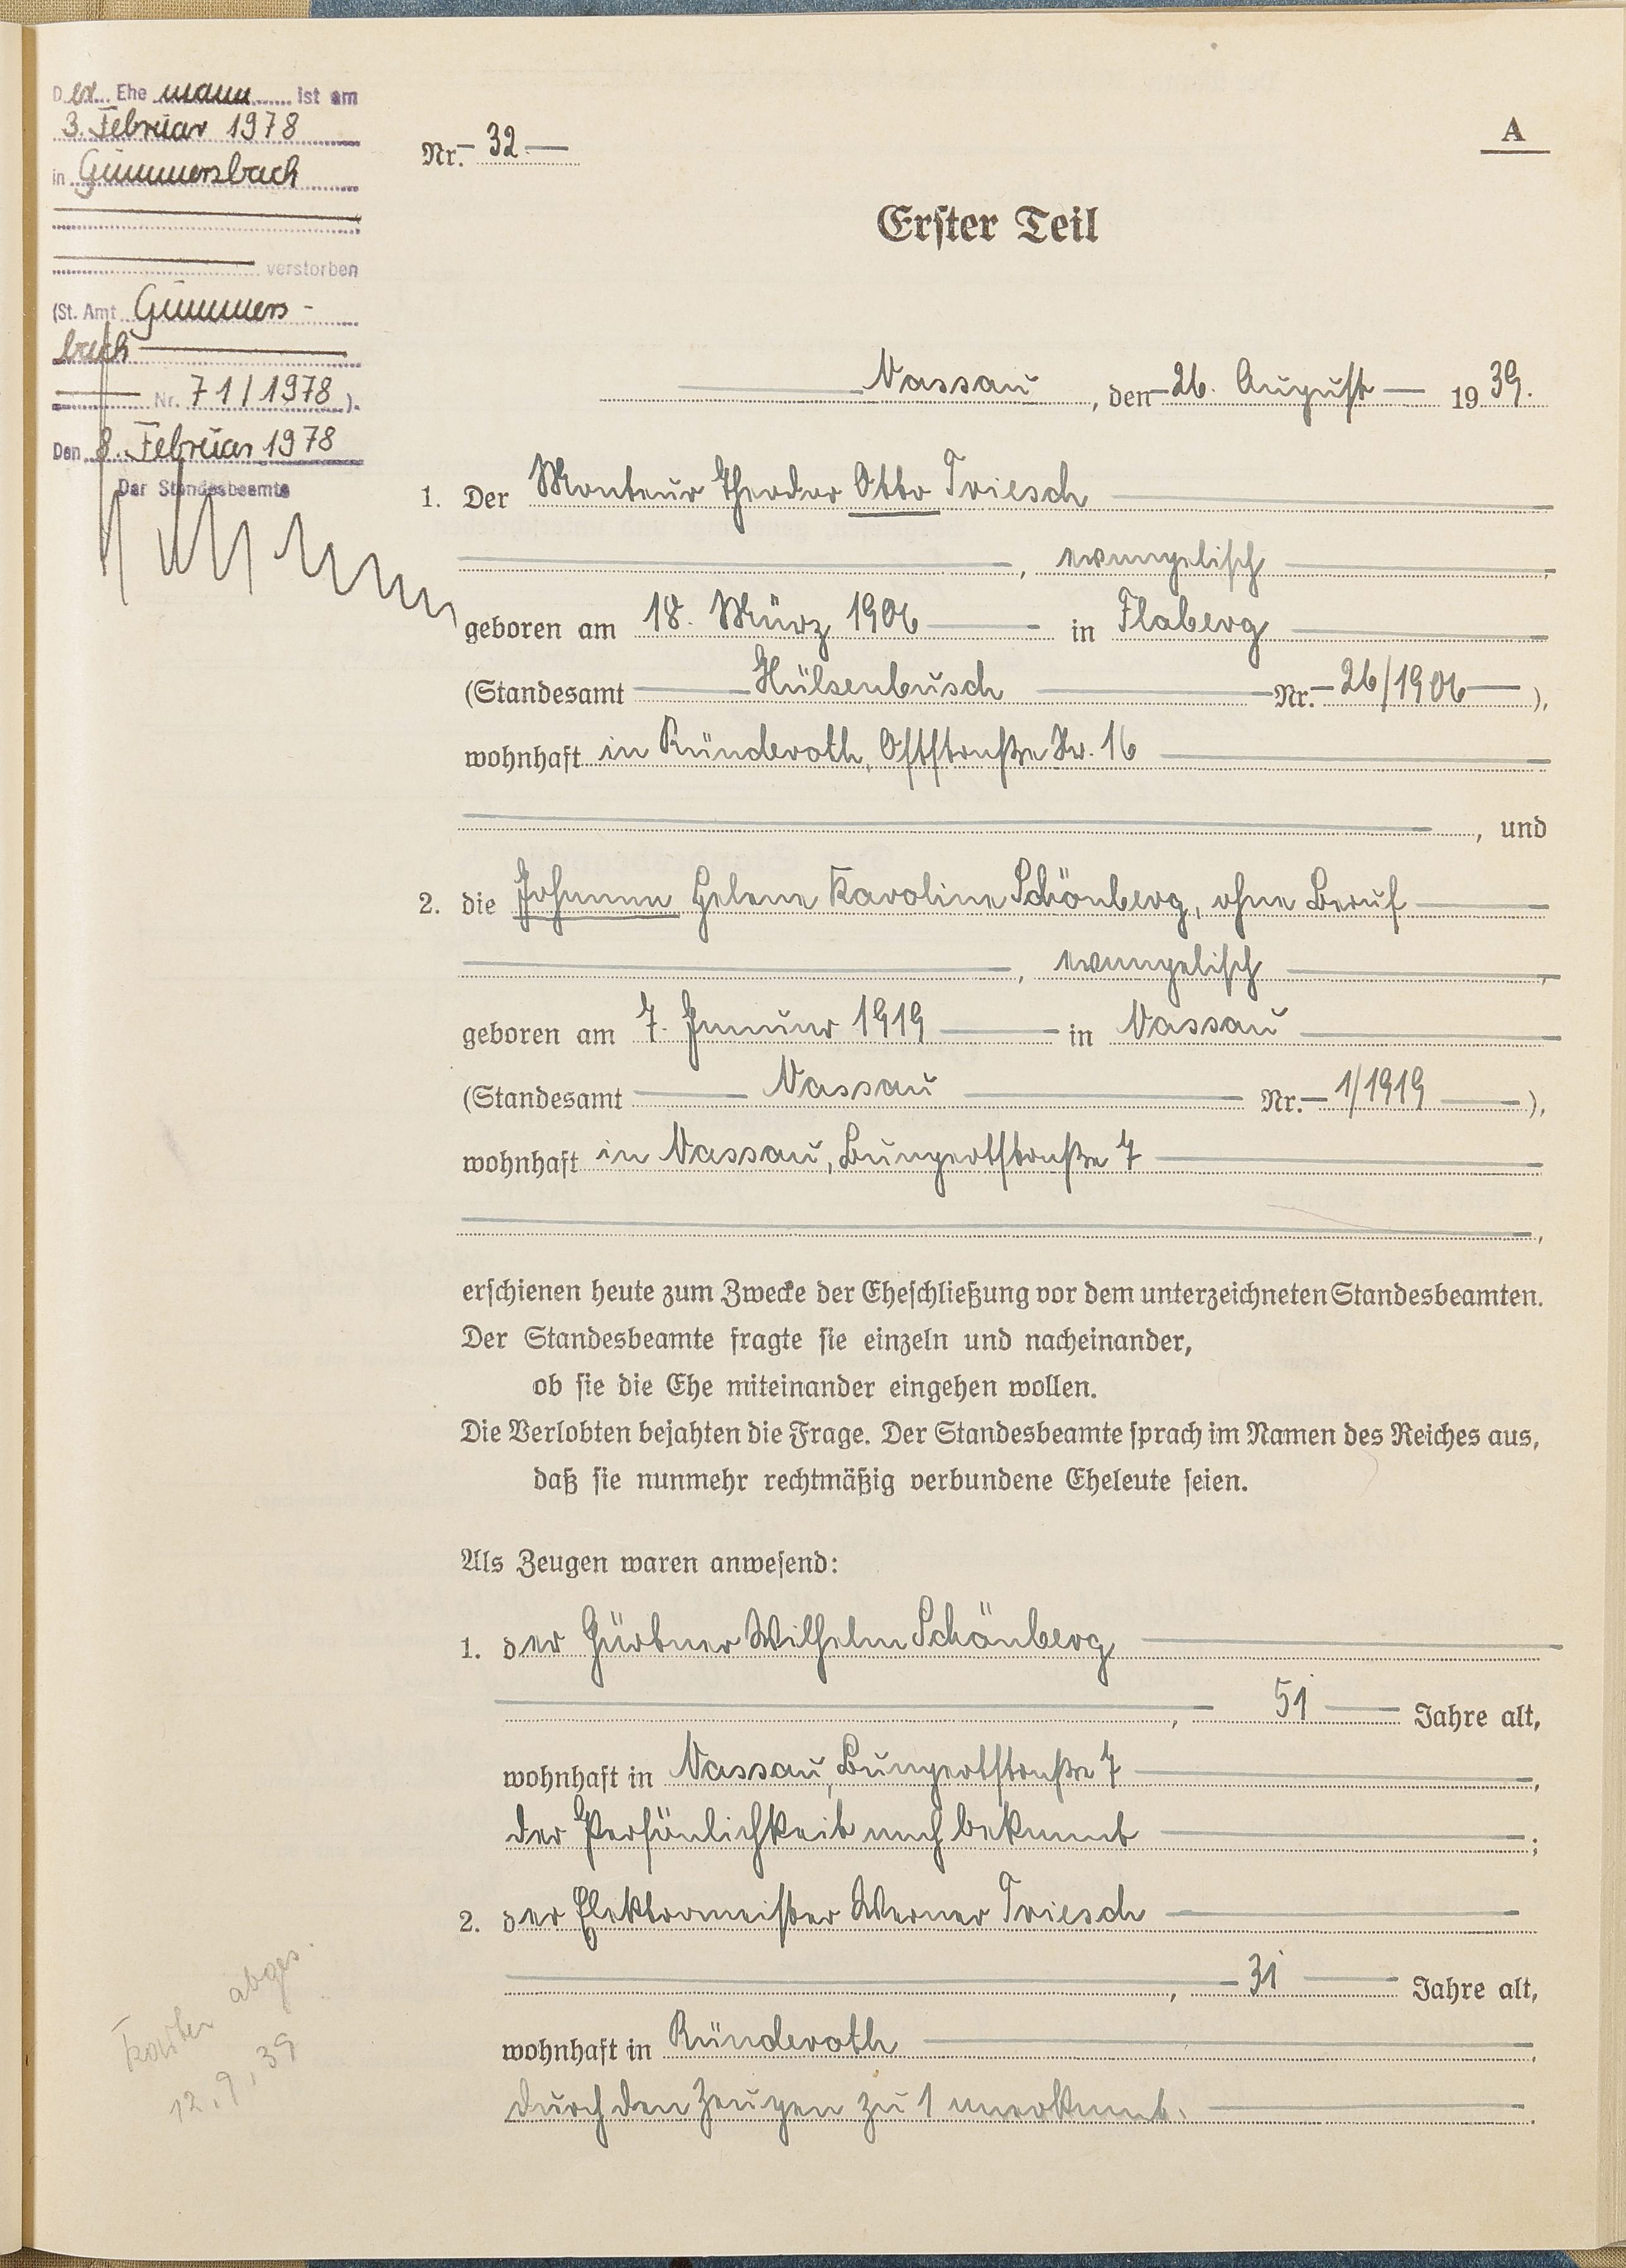 Der Ehe mann ist am
3. Februar 1978
in Gummersbach
verstorben
(St. Amt Gummers-
bach
Nr. 71/1978).
Den 8. Februar 1978
Der Standesbeamte
A
Nr. 32
Erster Teil
Nassau, den 26. August 1939.
1. Der Monteur Theodor Otto Triesch
, evangelisch,
geboren am 18. März 1906 in Flaberg
(Standesamt Hülsenbusch Nr. 26/1906),
wohnhaft in Ründeroth, Oststraße Nr. 16
, und
2. die Johanna Helene Karoline Schönberg, ohne Beruf
, evangelisch,
geboren am 7. Januar 1919 in Nassau
(Standesamt Nassau Nr. 1/1919),
wohnhaft in Nassau, Bungertstraße 7
,
erschienen heute zum Zwecke der Eheschließung vor dem unterzeichneten Standesbeamten.
Der Standesbeamte fragte sie einzeln und nacheinander,
ob sie die Ehe miteinander eingehen wollen.
Die Verlobten bejahten die Frage. Der Standesbeamte sprach im Namen des Reiches aus,
daß sie nunmehr rechtmäßig verbundene Eheleute seien.
Als Zeugen waren anwesend:
1. der Gärtner Wilhelm Schönberg
, 51 Jahre alt,
wohnhaft in Nassau, Bungertstraße 7,
der Persönlichkeit nach bekannt;
2. der Elektromeister Werner Triesch
, 31 Jahre alt,
wohnhaft in Ründeroth,
durch den Zeugen zu 1 anerkannt.
abges.
12.9.39